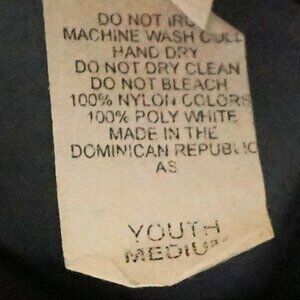 DO NOT IRON
MACHINE WASH COLD
HAND DRY
DO NOT DRY CLEAN
DO NOT BLEACH
100% NYLON COLORS
100% POLY WHITE
MADE IN THE
DOMINICAN REPUBLIC
AS
YOUTH
MEDIUM